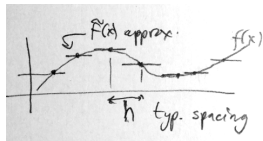 f̃(x) approx.
f(x)
h typ. spacing